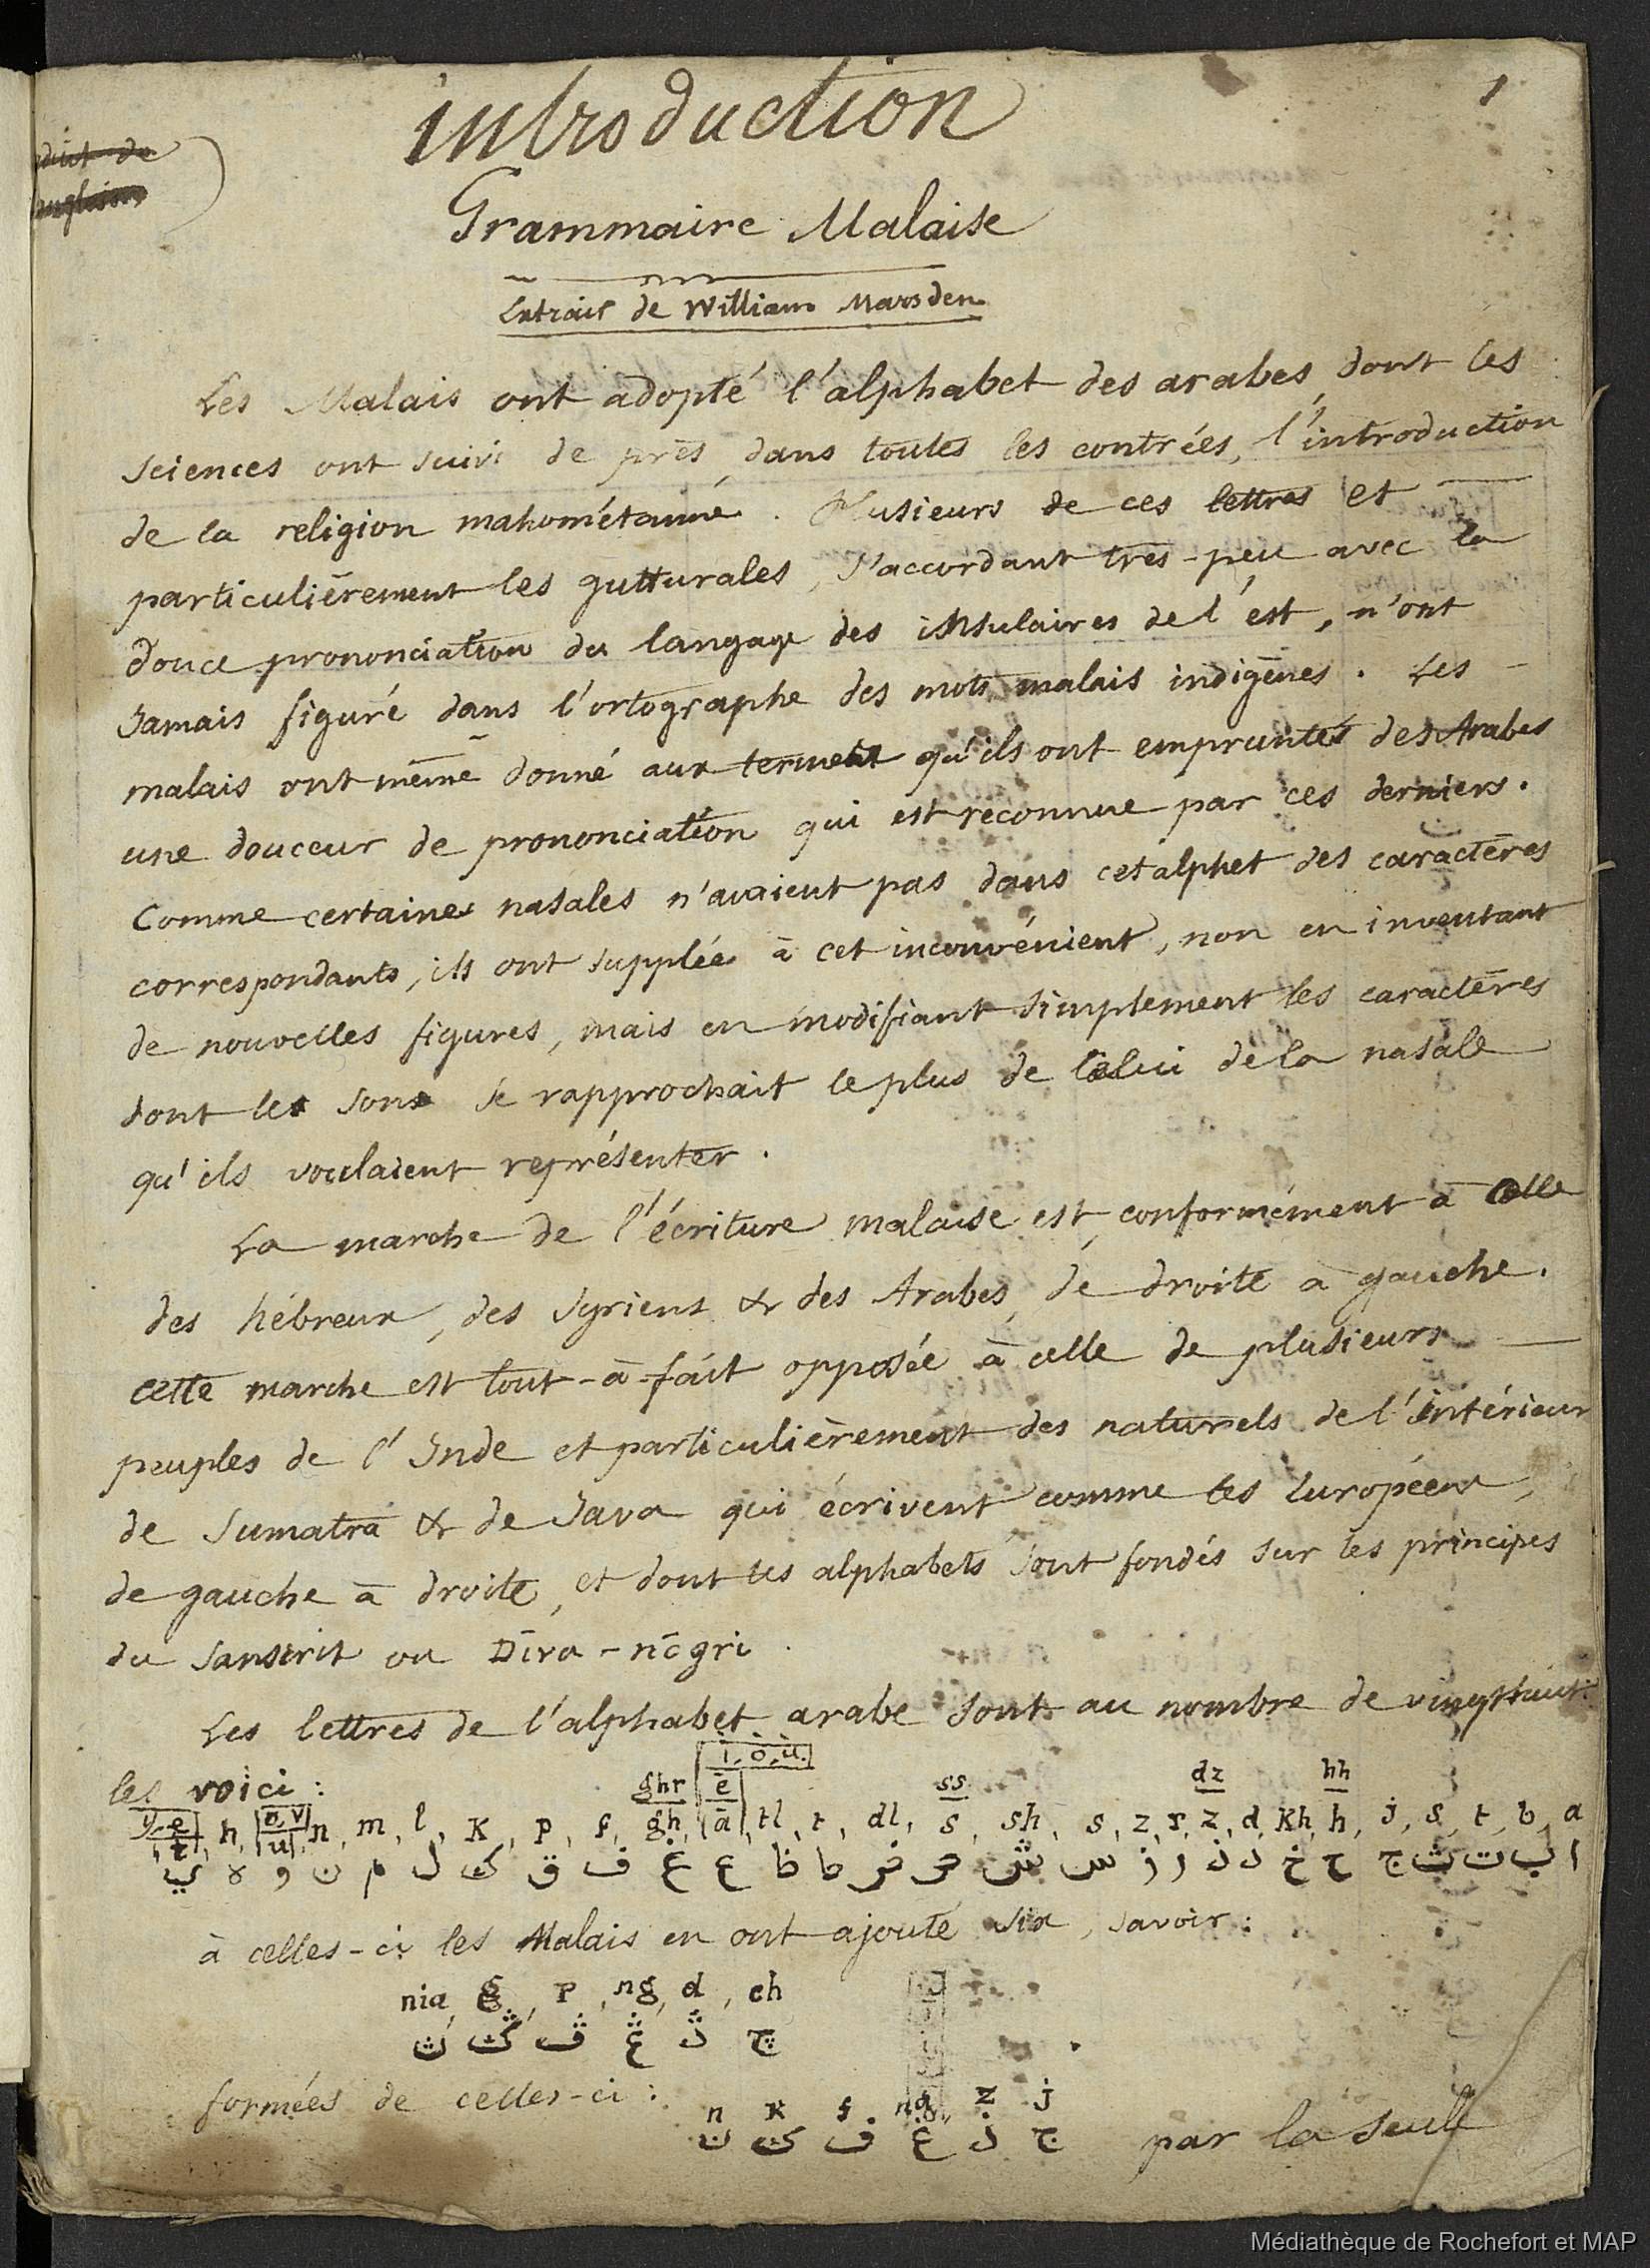 introduction
1
Grammaire Malaise
Extrait de William Marsden
Les Malais ont adopté l'alphabet des arabes, dont les
sciences ont suivi de près, dans toutes les contrées, l'introduction
de la religion mahométanne. Plusieurs de ces lettres et
particulièrement les gutturales, s'accordant très-peu avec la
douce prononciation du langage des insulaires de l'est, n'ont
Jamais figuré dans l'ortographe des mots malais indigènes. Les
malais ont même donné aux termes qu'ils ont empruntés des Arabes
une douceur de prononciation qui est reconnue par ces derniers.
Comme certaines nasales n'avaient pas dans cet alphet des caractères
correspondants, ils ont supplée à cet inconvénient, non en inventant
de nouvelles figures, mais en modifiant simplement les caractères
dont le son se rapprochait le plus de celui de la nasale
qu'ils voulaient représenter.
La marche de l'écriture malaise est, conformément à celle
des hébreux, des Syriens & des Arabes, de droite à gauche.
cette marche est tout-à-fait opposée à celle de plusieurs
peuples de l'Inde et particulièrement des naturels de l'intérieur
de Sumatra & de Java qui écrivent comme les Européens,
de gauche à droite, et dont les alphabets sont fondés sur les principes
du Sanscrit ou Dīva-nāgri.
Les lettres de l'alphabet arabe sont au nombre de vingt huit:
les voici :
i, o, u.
ghr e ss dz hh
y, e h, o, v n, m, l, K, p, f, gh, a, tl, t, dl, s, sh, s, z, r, z, d, Kh, h, j, s, t, b, a
i u
ا ب ت ث ج ح خ د ذ ر ز س ش ص ض ط ظ ع غ ف ق ك ل م ن و ه ي
à celles-ci les Malais en ont ajouté six, savoir :
nia, g, p, ng, d, ch
چ ڎ ڠ ڤ
formées de celles-ci :
n K f ng z j
ج ذ غ ف ك ن
par la seule
Médiathèque de Rochefort et MAP